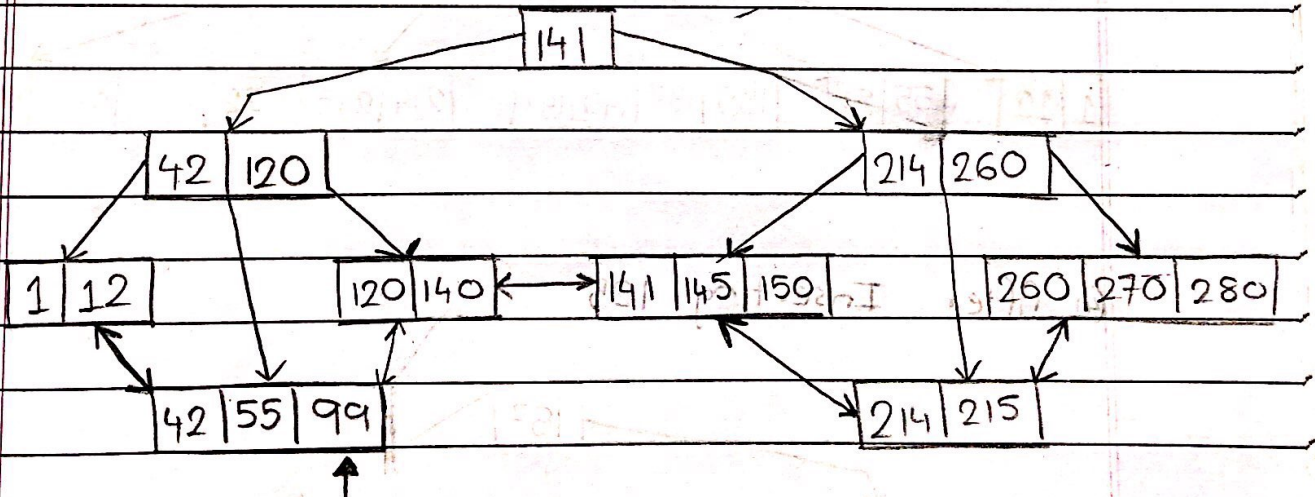 141
42 120 214 260
1 12 120 140 141 145 150 260 270 280
42 55 99 214 215